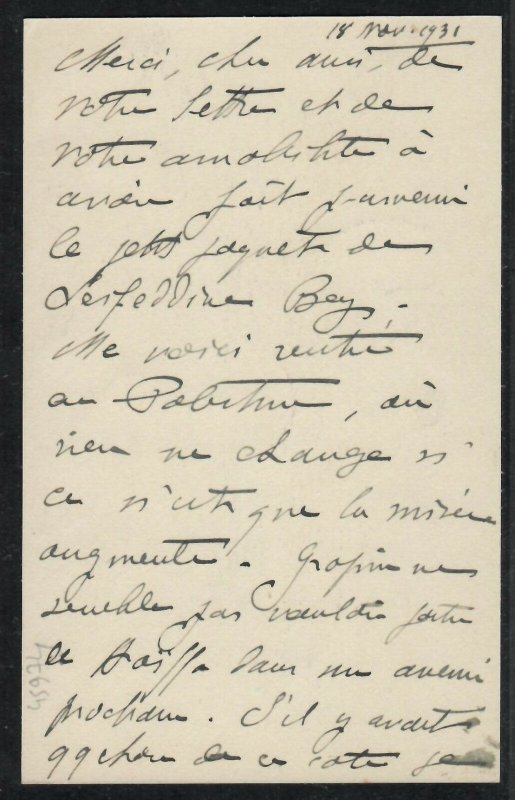 18 Nov. 1931
Merci, cher ami, de
votre lettre et de
votre amabilité à
avoir fait parvenir
le petit paquet de
Seifeddine Bey.
Me voici rentré
en Palestine, où
rien ne change si
ce n'est que la misère
augmente.
semble pas vouloir partir
de Haïffa dans un avenir
prochain. S'il y avait
qqchose de ce côté je
45974